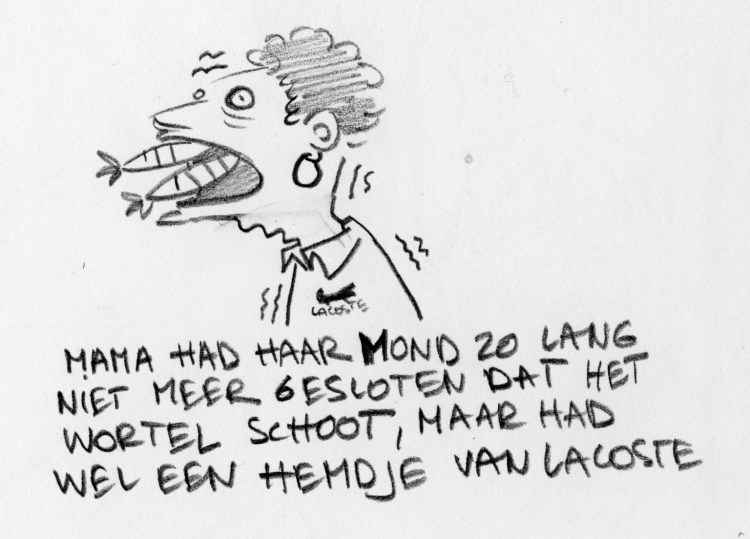 LACOSTE
MAMA HAD HAAR MOND ZO LANG
NIET MEER GESLOTEN DAT HET
WORTEL SCHOOT, MAAR HAD
WEL EEN HEMDJE VAN LACOSTE